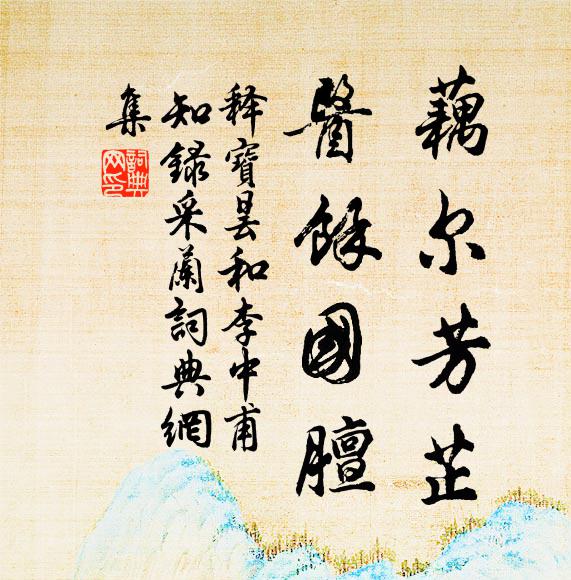 藕尔芳芷
醫餘國膻
释寶昙和李中甫
知録采蘭詞典網
集
詞典网印